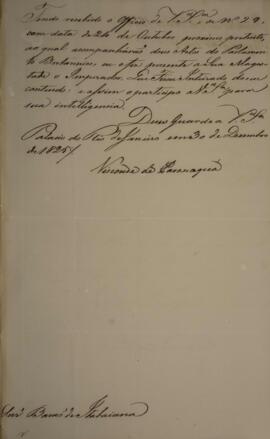 Tendo recebido o Officio de V. Ex.ª n.º 29,
com data de 24 de Outubro proximo preterito,
ao qual acompanhavão dous Actos do Parlamento
Britannico, eu o fiz presente a Sua Magestade
o Imperador. Que Ficou Inteirado do seu
contendo; e assim o participo a V. Ex.ª para
sua intelligencia.
Deus Guarde a V. Ex.ª
Palacio do Rio de Janeiro em 30 de Dezembro
de 1825//
Visconde de Paranaguá
Snr. Barão de Itabaiana